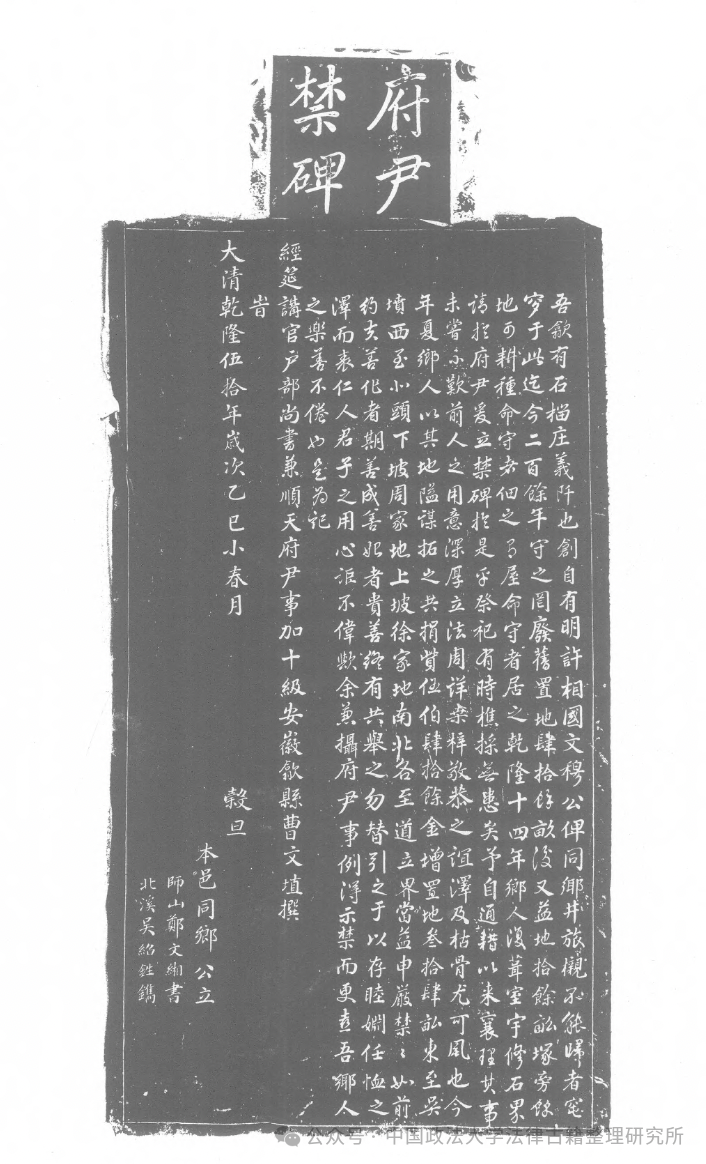 府尹
禁碑
吾歙有石榴庄義阡也創自有明許相國文穆公俾同鄉井旅櫬不能歸者窀
穸于此迄今二百餘年守之罔廢舊置地肆拾餘畝後又益地拾餘畝塚旁餘
地可耕種命守者佃之有屋命守者居之乾隆十四年鄉人復葺室宇修石界
請於府尹爰立禁碑於是乎祭祀有時樵採無患矣予自通籍以來襄理其事
未嘗不歎前人之用意深厚立法周詳桑梓敬恭之誼澤及枯骨尤可風也今
年夏鄉人以其地隘謀拓之共捐貲伍伯肆拾餘金增置地叁拾肆畝東至吳
墳西至小頭下坡周家地上坡徐家地南北各至道立界當益申嚴禁禁如前
約夫善作者期善成善始者貴善終有共舉之勿替引之于以存睦婣任恤之
澤而表仁人君子之用心詎不偉歟余兼攝府尹事例得示禁而更嘉吾鄉人
之樂善不倦也是為記
經筵講官户部尚書兼順天府尹事加十級安徽歙縣曹文埴撰
旹
大清乾隆伍拾年歲次乙巳小春月 穀旦
本邑同鄉 公立
師山鄭文絢書
北溪吳紹鉎鐫
公众号·中国政法大学法律古籍整理研究所